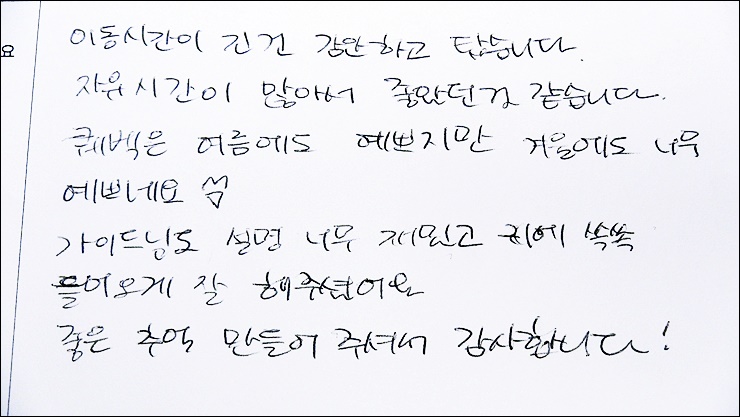 요
이동시간이 긴건 감안하고 탔습니다.
자유시간이 많아서 좋았던것 같습니다.
퀘벡은 여름에도 예쁘지만 겨울에도 너무
예쁘네요
가이드님도 설명 너무 재밌고 귀에 쏙쏙
들어오게 잘 해주셨어요
좋은 추억 만들어 주셔서 감사합니다!